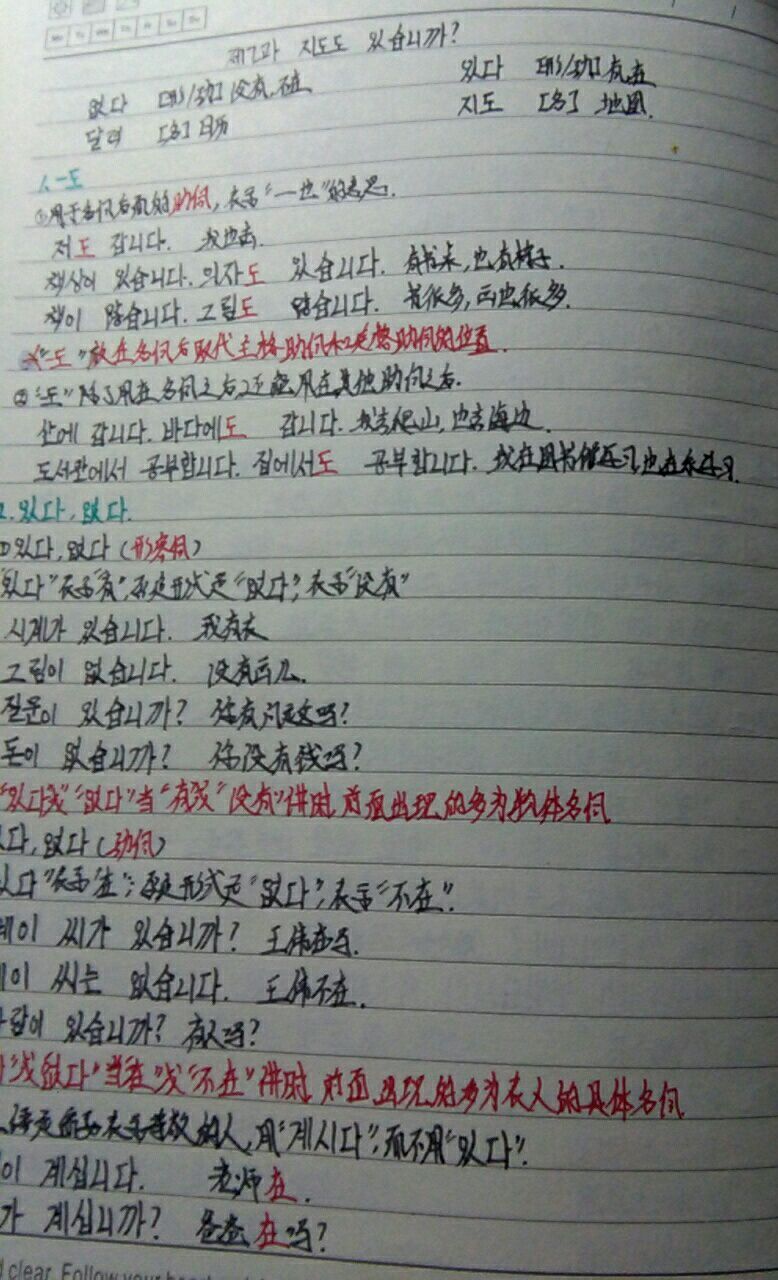 제7과 지도도 있습니까?
없다 [形/动] 没有,不在 있다 [形/动] 有,在
달력 [名] 日历 지도 [名] 地图.
1.-도
①用于名词后面的助词,表示“一也”的意思.
저도 갑니다. 我也去.
책상이 있습니다. 의자도 있습니다. 有书桌,也有椅子.
책이 많습니다. 그림도 많습니다. 书很多,画也很多.
“도”放在名词后取代主格助词和之宾格助词的位置.
②“도”除了用在名词之后,还能用在其他助词之后.
산에 갑니다. 바다에도 갑니다. 我去爬山,也去海边.
도서관에서 공부합니다. 집에서도 공부합니다. 我在图书馆学习,也在家学习.
2.있다, 없다.
①있다, 없다 (形容词)
“있다”表示“有”,否定形式是“없다”,表示“没有”
시계가 있습니다. 我有表
그림이 없습니다. 没有画儿.
질문이 있습니까? 你有问题吗?
돈이 없습니까? 你没有钱吗?
“있다或”“없다”当“有或”“没有”讲时,前面出现的多为物体名词
다, 없다 (动词)
있다”表示“在”;否定形式是“없다”,表示“不在”.
웨이 씨가 있습니까? 王伟在吗.
웨이 씨는 없습니다. 王伟不在.
사람이 있습니까? 有人吗?
“或없다”当“在”或“不在”讲时,前面出现的多为表人的具体名词
表示尊敬的人,用“계시다”,而不用“있다”.
이 계십니다. 老师在.
가 계십니까? 爸爸在吗?
d clear. Follow your